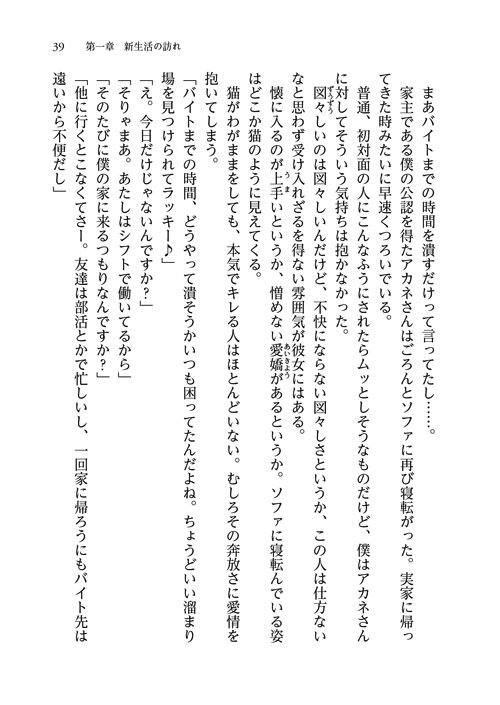 39　第一章　新生活の訪れ
　まあバイトまでの時間を潰すだけって言ってたし……。
　家主である僕の公認を得たアカネさんはごろんとソファに再び寝転がった。実家に帰っ
てきた時みたいに早速くつろいでいる。
　普通、初対面の人にこんなふうにされたらムッとしそうなものだけど、僕はアカネさん
に対してそういう気持ちは抱かなかった。
　図々しいのは図々しいんだけど、不快にならない図々しさというか、この人は仕方ない
なと思わず受け入れざるを得ない雰囲気が彼女にはある。
　懐に入るのが上手いというか、憎めない愛嬌があるというか。ソファに寝転んでいる姿
はどこか猫のように見えてくる。
　猫がわがままをしても、本気でキレる人はほとんどいない。むしろその奔放さに愛情を
抱いてしまう。
「バイトまでの時間、どうやって潰そうかいつも困ってたんだよね。ちょうどいい溜まり
場を見つけられてラッキー♪」
「え。今日だけじゃないんですか？」
「そりゃまあ。あたしはシフトで働いてるから」
「そのたびに僕の家に来るつもりなんですか？」
「他に行くとこなくてさー。友達は部活とかで忙しいし、一回家に帰ろうにもバイト先は
遠いから不便だし」